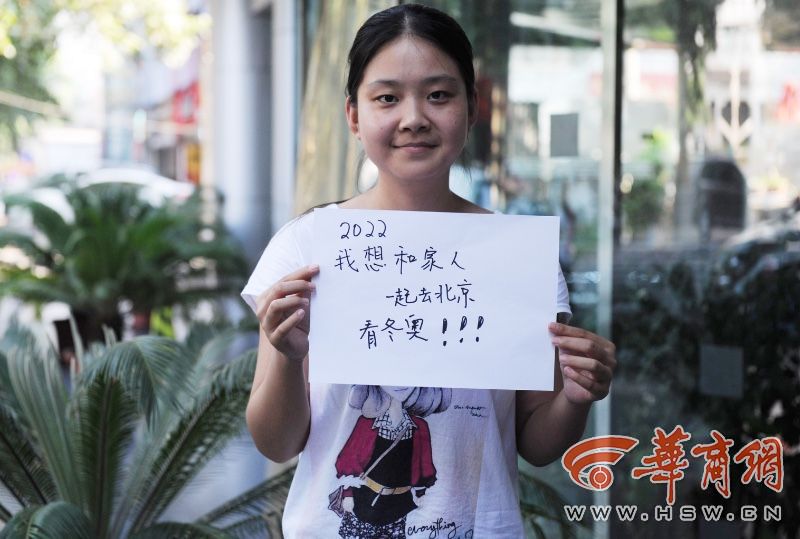 2022
我想和家人
一起去北京
看冬奥!!!
everything
华商网
WWW.HSW.CN